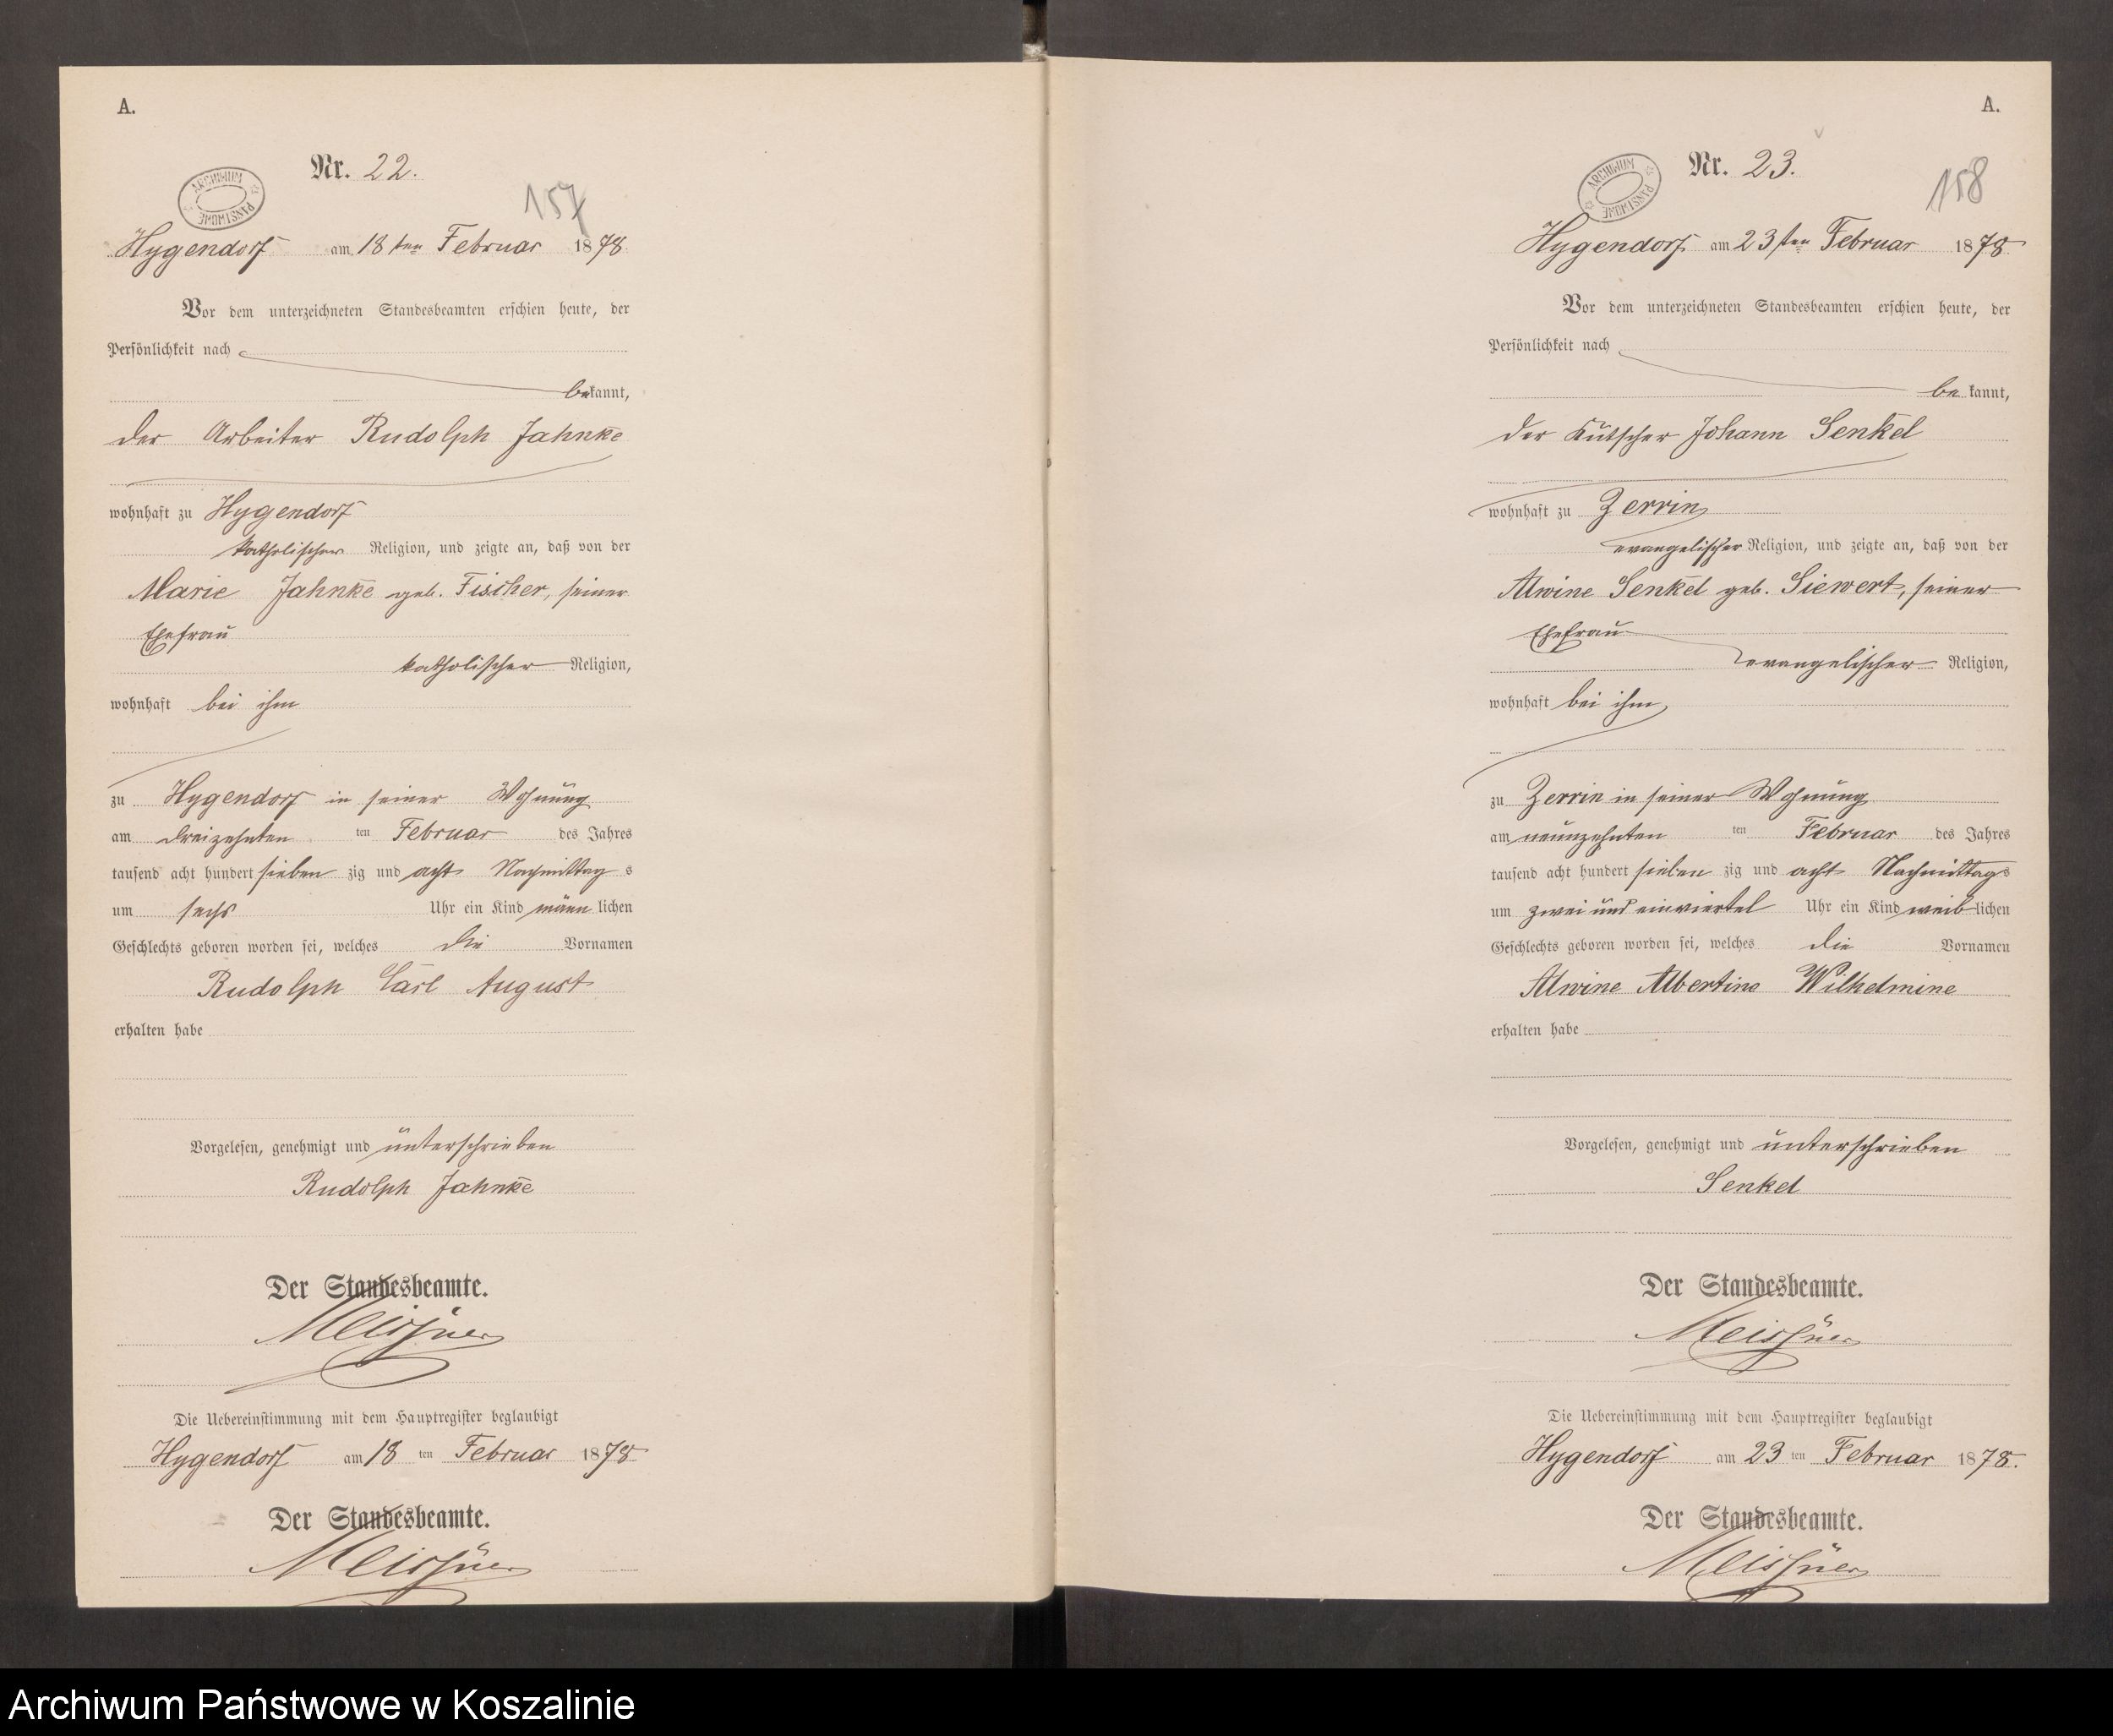 A.
Nr. 22.
ARCHIWUM PAŃSTWOWE
157
Hygendorf am 18ten Februar 1878
Vor dem unterzeichneten Standesbeamten erschien heute, der
Persönlichkeit nach
bekannt,
der Arbeiter Rudolph Jahnke
wohnhaft zu Hygendorf
katholischer Religion, und zeigte an, daß von der
Marie Jahnke geb. Fischer, seiner
Ehefrau
katholischer Religion,
wohnhaft bei ihm
zu Hygendorf in seiner Wohnung
am dreizehnten ten Februar des Jahres
tausend acht hundert sieben zig und acht Nachmittag s
um sechs Uhr ein Kind männ lichen
Geschlechts geboren worden sei, welches die Vornamen
Rudolph Carl August
erhalten habe
Vorgelesen, genehmigt und unterschrieben
Rudolph Jahnke
Der Standesbeamte.
Meissner
Die Uebereinstimmung mit dem Hauptregister beglaubigt
Hygendorf am 18 ten Februar 1878
Der Standesbeamte.
Meissner
A.
Nr. 23.
ARCHIWUM PAŃSTWOWE
158
Hygendorf am 23sten Februar 1878
Vor dem unterzeichneten Standesbeamten erschien heute, der
Persönlichkeit nach
be kannt,
der Kutscher Johann Senkel
wohnhaft zu Zerrin
evangelischer Religion, und zeigte an, daß von der
Alwine Senkel geb. Siewert, seiner
Ehefrau
evangelischer Religion,
wohnhaft bei ihm,
zu Zerrin in seiner Wohnung
am neunzehnten ten Februar des Jahres
tausend acht hundert sieben zig und acht Nachmittags
um zwei und einviertel Uhr ein Kind weib lichen
Geschlechts geboren worden sei, welches die Vornamen
Alwine Albertine Wilhelmine
erhalten habe
Vorgelesen, genehmigt und unterschrieben
Senkel
Der Standesbeamte.
Meissner
Die Uebereinstimmung mit dem Hauptregister beglaubigt
Hygendorf am 23 ten Februar 1878.
Der Standesbeamte.
Meissner
Archiwum Państwowe w Koszalinie